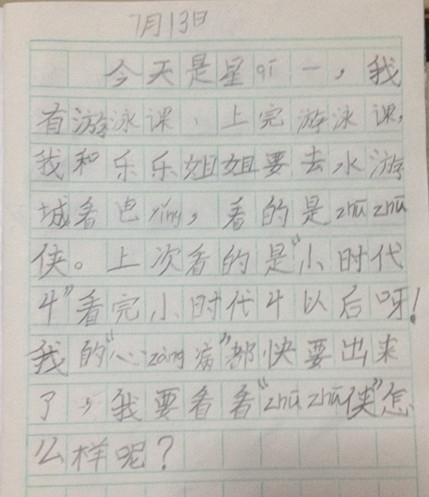 7月13日
今天是星qī一，我
有游泳课、上完游泳课，
我和乐乐姐姐要去水游
城看电yǐng，看的是zhū zhū
侠。上次看的是“小时代
4”看完小时代4以后呀！
我的“心zàng病”都快要出来
了，我要看看“zhū zhū侠”怎
么样呢？